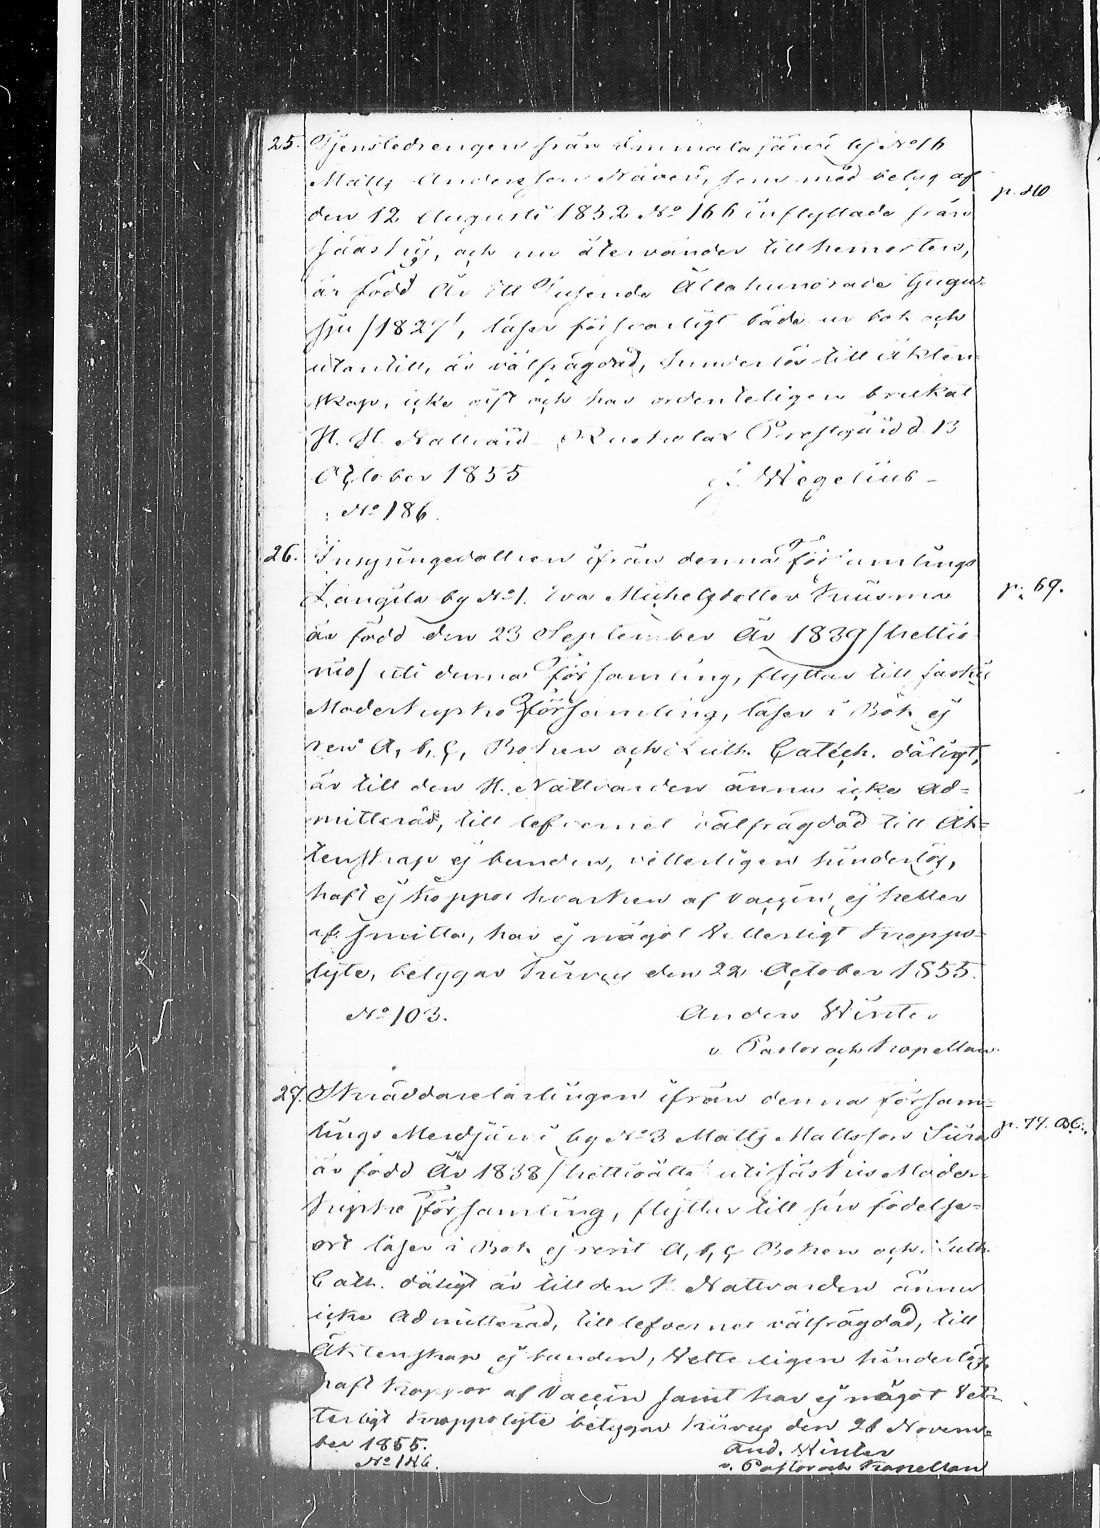 25. Tjenstedrengen från Immolajärvi by No 16
Matts Andersson Näveri, som med betyg af
p. 40
den 12 Augusti 1852 No 166 inflyttade från
Jääskis, och nu återvänder till hemorten,
är född År Ett Tusende Åttahundrade tjugu-
sju /1827/, läser försvarligt både ur bok och
utantill, är välfrägdad, hinderlös till Äkten-
skap, icke gift och har ordenteligen brukat
H. H. Nattvard. Ruokolax Prestgård d. 13
October 1855 Wegelius
No 186.
26. Inhysingedottren ifrån denna församlings
Längilä by No 1. Eva Michelsdotter Kuisma
p. 69.
är född den 23 September År 1839 /trettio
nio/ uti denna församling, flyttar till Jäskis
Moderkyrko församling, läser i Bok ej
rent A, b, c, Boken och Luth. Catech. dåligt,
är till den H. Nattvarden ännu icke Ad=
mitterad, till lefvernet välfrägdad till Äk=
tenskap ej bunden, vetterligen hinderlös,
haft ej koppor hvarken af vaccin ej heller
af smitta, har ej något vetterligt kropps=
lyte, betygar Kirvus den 22 October 1855.
No 103. Anders Winter
v. Pastor och Kapellan.
27. Skräddarelärlingen ifrån denna försam=
lings Merdjärvi by No 3 Matts Mattsson Siira
p. 77.
är född År 1838 /trettioåtta/ uti Jäskis Moder=
kyrko församling, flyttar till sin födelse=
ort läser i Bok ej rent A, b, c Boken och Luth.
Cath. dåligt är till den H. Nattvarden ännu
icke Admitterad, till lefvernet välfrägdad, till
Äktenskap ej bunden, vetterligen hinderlös,
haft koppor af vaccin samt har ej något vet=
terligt kroppslyte betygar Kirvus den 26 Novem=
ber 1855. And. Winter
No 146. v. Pastor och Kapellan